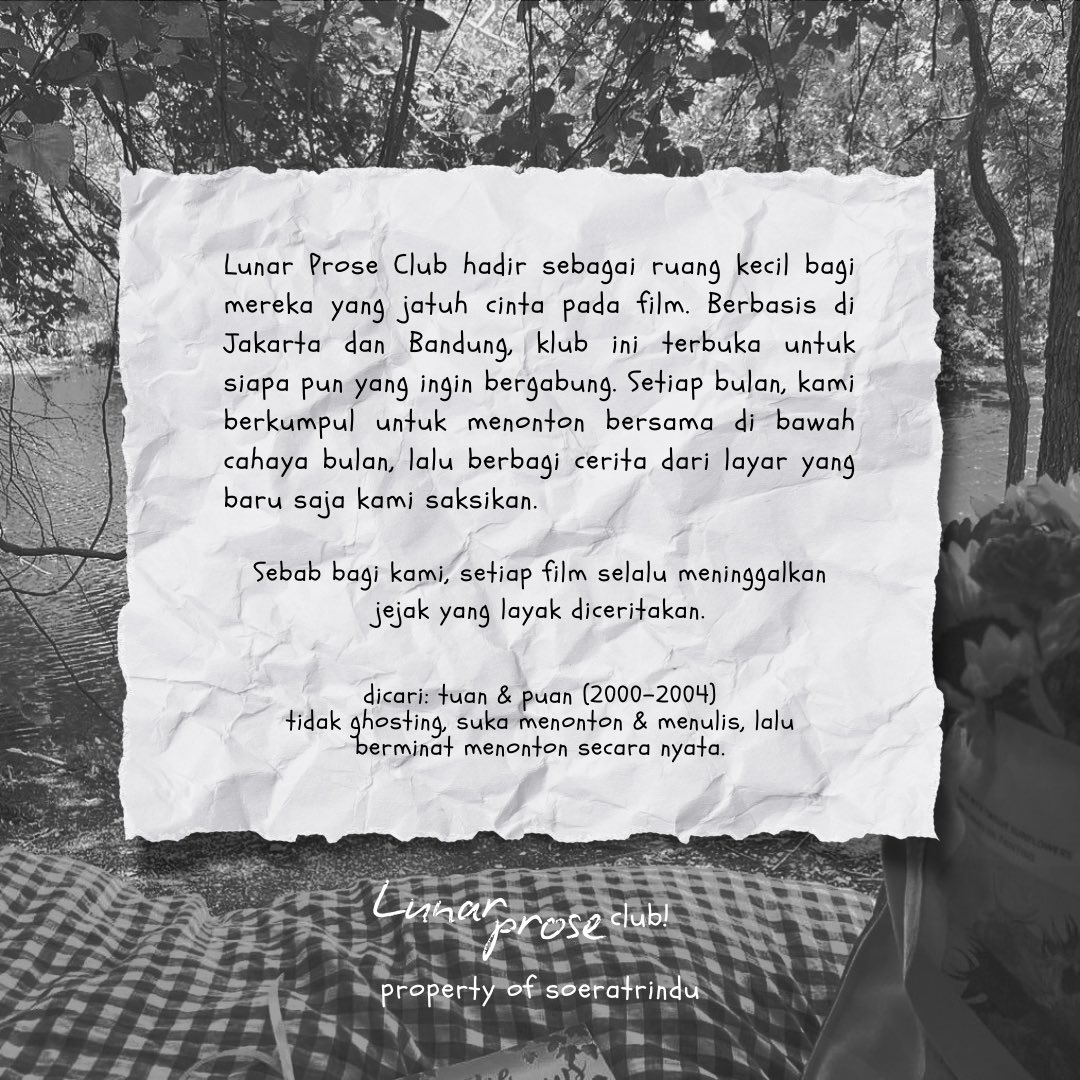 Lunar Prose Club hadir sebagai ruang kecil bagi
mereka yang jatuh cinta pada film. Berbasis di
Jakarta dan Bandung, klub ini terbuka untuk
siapa pun yang ingin bergabung. Setiap bulan, kami
berkumpul untuk menonton bersama di bawah
cahaya bulan, lalu berbagi cerita dari layar yang
baru saja kami saksikan.
Sebab bagi kami, setiap film selalu meninggalkan
jejak yang layak diceritakan.
dicari: tuan & puan (2000-2004)
tidak ghosting, suka menonton & menulis, lalu
berminat menonton secara nyata.
Lunar prose club!
property of soeratrindu